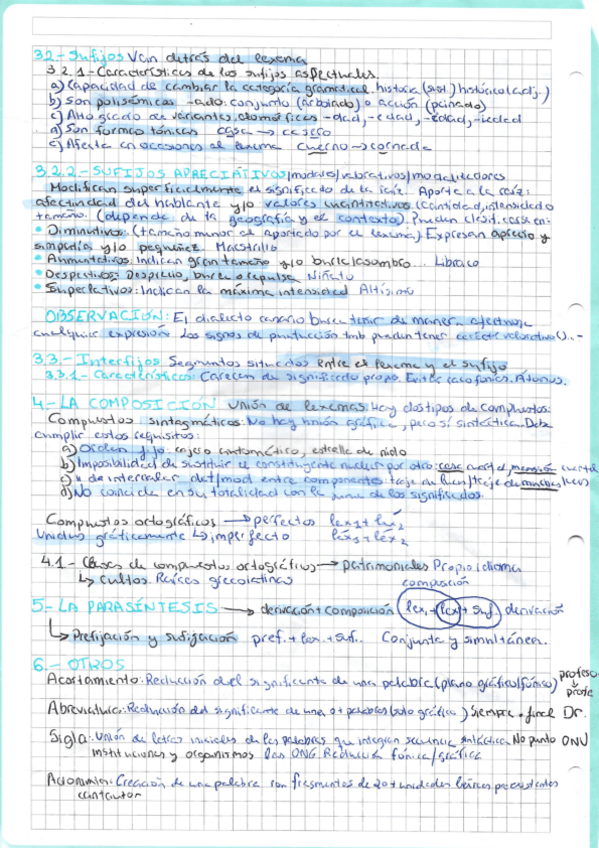 3.2.- Sufijos Van detrás del lexema
3.2.1.- Características de los sufijos aspectuales
a) Capacidad de cambiar la categoría gramatical. historia (sust.) histórico (adj.)
b) Son polisémicos -ado: conjunto (arbolado) o acción (peinado)
c) Alto grado de variantes alomórficas -dad, -edad, -idad, -iedad
d) Son formas tónicas casa → casero
e) Afecta en ocasiones al lexema cuerno → cornada
3.2.2.- SUFIJOS APRECIATIVOS/modales/valorativos/modalizadores
Modifican superficialmente el significado de la raíz. Aporta a la raíz:
afectividad del hablante y/o valores cuantitativos (cantidad, intensidad o
tamaño. (depende de la geografía y el contexto). Pueden clasificarse en:
• Diminutivos: (tamaño menor al aportado por el lexema) Expresan aprecio y
simpatía y/o pequeñez Maestrillo
• Aumentativos: Indican gran tamaño y/o burla/asombro... Libraco
• Despectivos: Desprecio, burla o repulsa Niñato
• Superlativos: Indican la máxima intensidad Altísimo
OBSERVACIÓN: El dialecto canario busca teñir de manera afectuosa
cualquier expresión. Los signos de puntuación tmb pueden tener carácter valorativo
3.3.- Interfijos Segmentos situados entre el lexema y el sufijo
3.3.1.- Características: Carecen de significado propio. Evitan cacofonías. Átonos.
4.- LA COMPOSICIÓN Unión de lexemas. Hay dos tipos de compuestos:
Compuestos sintagmáticos: No hay unión gráfica, pero sí sintáctica. Debe
cumplir estos requisitos:
a) Orden fijo. cajero automático, estrella de
b) Imposibilidad de sustituir el constituyente nuclear por otro: casa cuartel, mansión cuartel
c) " de intercalar det/mod entre componentes:
d) No coincide en su totalidad con la suma de los significados
Compuestos ortográficos → perfectos lex1 + léx2
Unidos gráficamente ↳ imperfecto léx1 + léx2
4.1.- Clases de compuestos ortográficos → patrimoniales Propio idioma
↳ cultos. Raíces grecolatinas
composición
5.- LA PARASÍNTESIS → derivación + composición lex1 + lex + suf. derivación
↳ Prefijación y sufijación pref. + lex. + suf. Conjunta y simultánea.
6.- OTROS
Acortamiento: Reducción del significante de una palabra (plano gráfico/fónico) profesor
↓
profe
Abreviatura: Reducción del significante de una o + palabras (solo gráfica) Siempre . final Dr.
Sigla: Unión de letras iniciales de las palabras que integran secuencia sintáctica No punto ONU
instituciones y organismos las ONG. Reducción fónica/gráfica
Acronimia: Creación de una palabra con fragmentos de 2 o + unidades léxicas preexistentes
cantautor